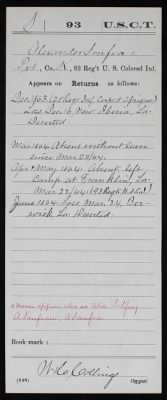 S | 93 | U.S.C.T.
Alexander Sonfra
Pvt., Co. K, 93 Reg't U. S. Colored Inf.
Appears on
Returns as follows:
Dec. 1863 (20 Reg. Inf. Corps d'Afrique)
Loss Dec. 16 New Iberia, La.
Deserted.
Mar. 1864 Absent without leave
since Mar 22/64.
Apr & May, 1864 Absent left
Camp at Franklin, La.
Mar. 22/64 (93 Reg't U.S.C.I.)
June 1864 Loss Mar. 24, Ber-
wick La. Deserted.
Name appears also as Alex.
Book mark:
(546)
Copyist.